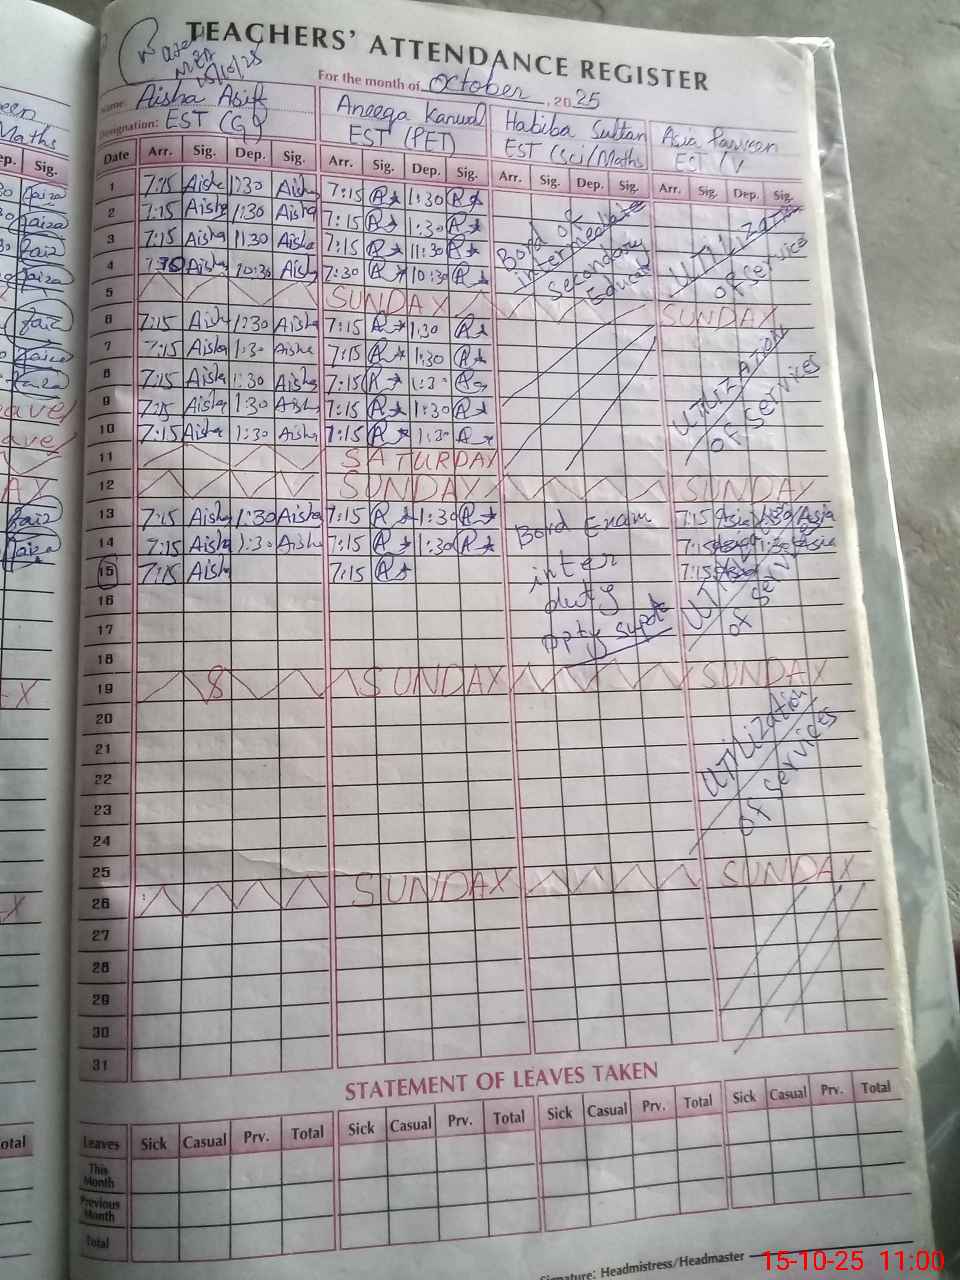 TEACHERS' ATTENDANCE REGISTER
For the month of October, 2025
Name: Aisha Asif Aneeqa Kanwal Habiba Sultan Asia Parveen
Designation: EST (G) EST (PET) EST (Sci/Maths EST
Date Arr. Sig. Dep. Sig. Arr. Sig. Dep. Sig. Arr. Sig. Dep. Sig. Arr. Sig. Dep. Sig.
1 7:15 Aisha 1:30 Aisha 7:15 1:30
2 7:15 Aisha 1:30 Aisha 7:15 1:30
3 7:15 Aisha 11:30 Aisha 7:15 11:30
4 Aisha 10:30 Aish 7:30 10:30
Bord of
intermediate
secondary
Educat
UTILIZation
of service
5 SUNDAY SUNDAY
6 7:15 Aish 1:30 Aisha 7:15 1:30
7 7:15 Aisha 1:30 Aisha 7:15 1:30
8 7:15 Aisha 1:30 Aisha 7:15 1:30
9 7:15 Aisha 1:30 Aish 7:15 1:30
10 7:15 Aisha 1:30 Aisha 7:15 1:30
UTILIZATION
of services
11 SATURDAY
12 SUNDAY SUNDAY
13 7:15 Aisha 1:30 Aisha 7:15 1:30 7:15 Asia 1:30 Asia
14 7:15 Aisha 1:30 Aisha 7:15 1:30 7:15 1:30 Asia
15 7:15 Aish 7:15 7:15
Bord Exam
inter
duty
of servi
16
17
18
19 8 SUNDAY SUNDAY
20
21
22
23
24
UTILIZATION
of services
25
26 SUNDAY SUNDAY
27
28
29
30
31
STATEMENT OF LEAVES TAKEN
Leaves Sick Casual Prv. Total Sick Casual Prv. Total Sick Casual Prv. Total Sick Casual Prv. Total
This Month
Previous Month
Total
Signature: Headmistress/Headmaster
15-10-25 11:00